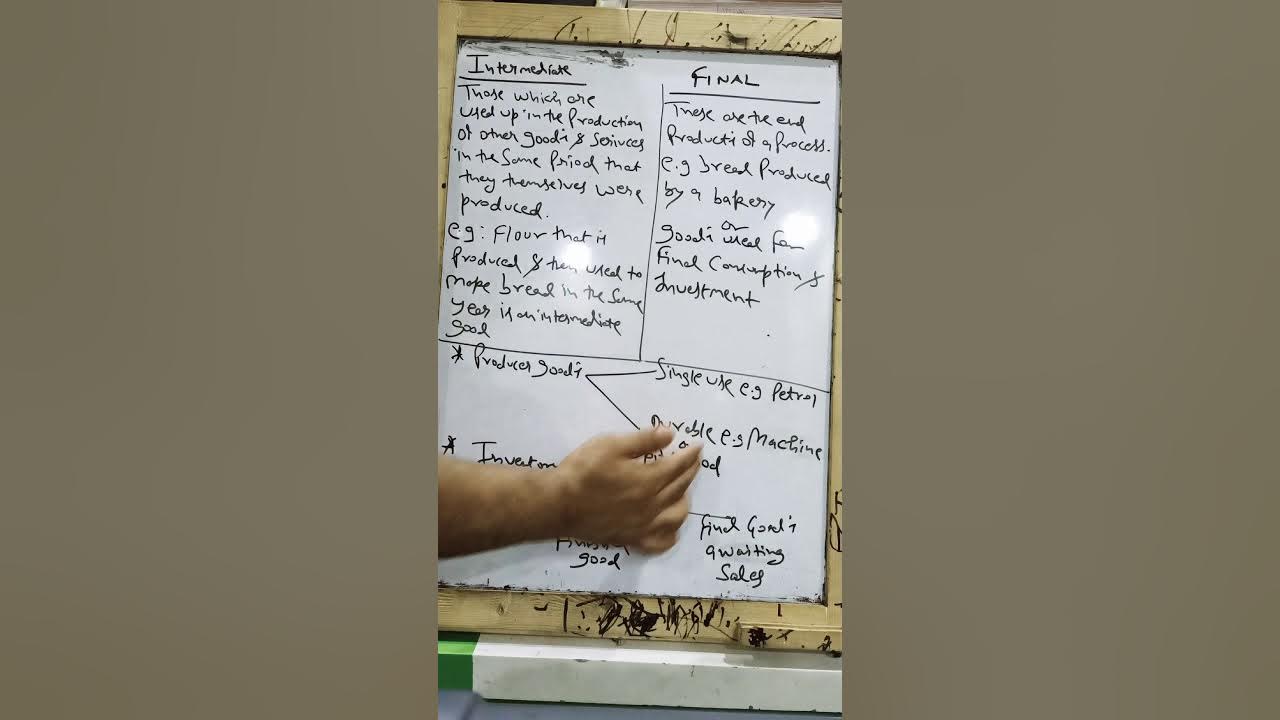 Intermediate
Those which are
used up in the Production
of other goods & Serivces
in the Same Priod that
they themselves were
produced.
e.g: Flour that is
Produced & then used to
make bread in the Same
year is an intermediate
good
FINAL
These are the end
Products of a Process.
e.g bread Produced
by a bakery
or
goods used for
Final Consumption &
Investment
* Producer goods
Single use e.g Petrol
Durable e.g Machine
* 
good
Final Goods
awaiting
Sales